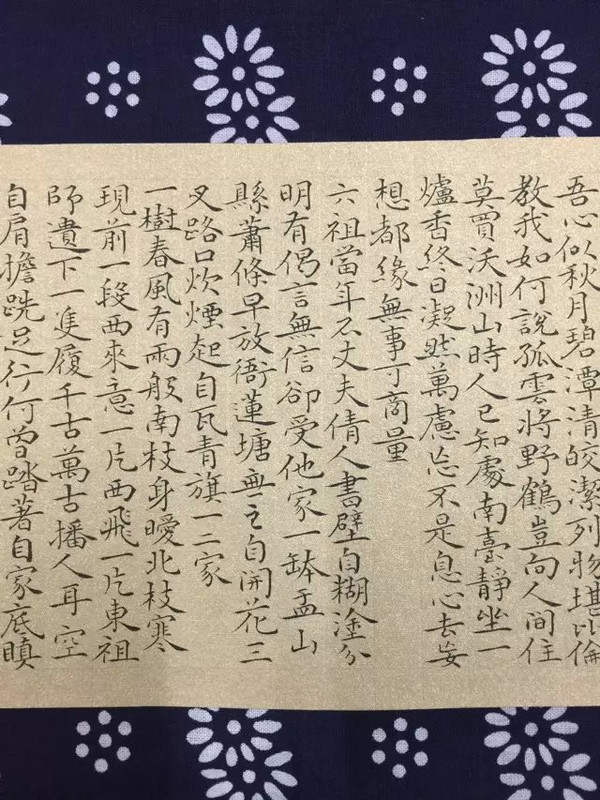 吾心似秋月碧潭清皎潔列物堪比倫
教我如何說孤雲將野鶴豈向人間住
莫買沃洲山時人已知處南臺靜坐一
爐香終日凝然萬慮忘不是息心去妄
想都緣無事可商量
六祖當年不丈夫倩人書壁自糊塗分
明有偈言無信卻受他家一缽盂山
縣蕭條早放衙蓮塘無主自開花三
叉路口炊煙起白瓦青旗一二家
一樹春風有兩般南枝身曖北枝寒
現前一段西來意一片西飛一片東祖
師遺下一隻履千古萬古播人耳空
自肩擔跣足行何曾踏著自家底瞋